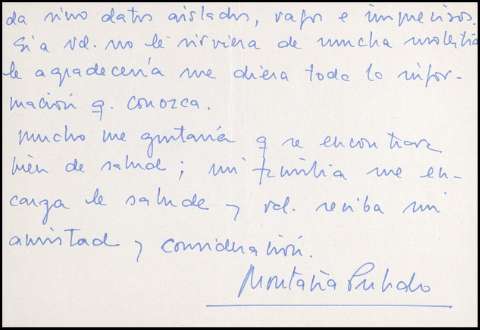 da sino datos aislados, vagos e imprecisos.
Si a vd. no le sirviera de mucha molestia
le agradecería me diera toda la infor-
mación q. conozca.
Mucho me gustaría q se encontrara
bien de salud; mi familia me en-
carga le salude y vd. reciba mi
amistad y consideración.
Montaña